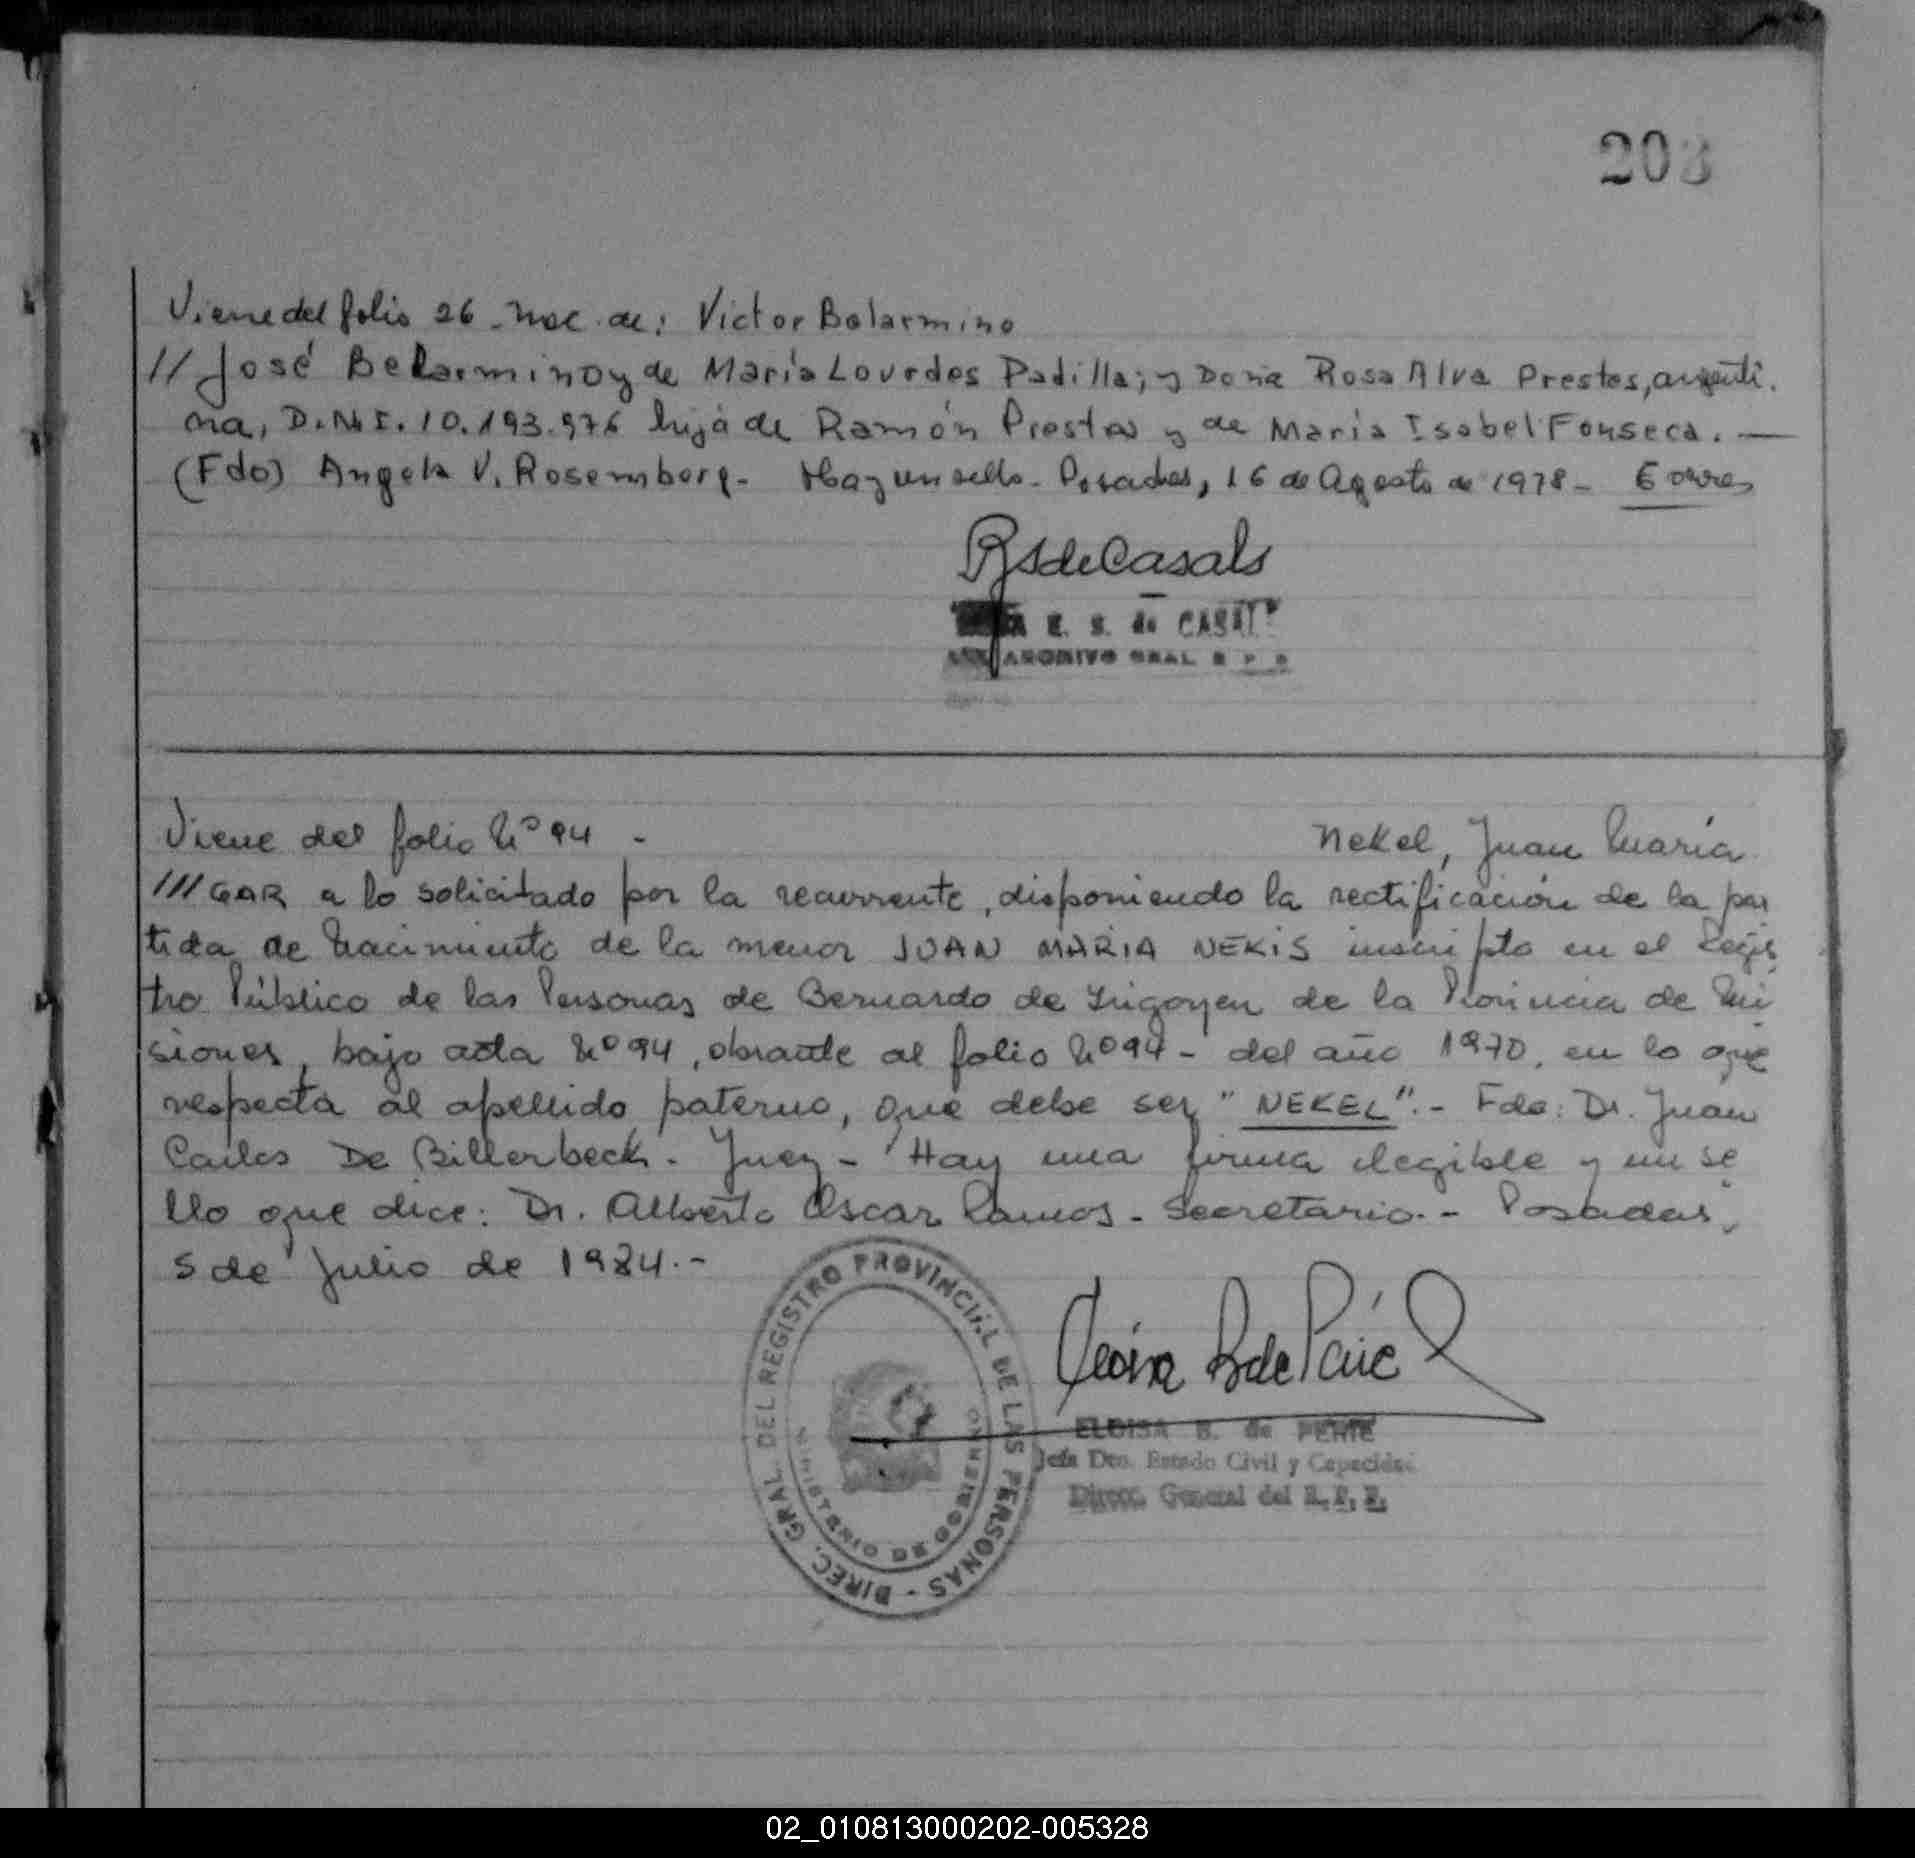 203
Viene del folio 26 - Nac. de: Victor Belarmino
// José Belarmino y de María Lourdes Padilla; y Doña Rosa Alva Prestes, argenti.
na, D.N.I. 10.193.976 hija de Ramón Prestes y de María Isabel Fonseca. —
(Fdo) Angela V. Rosemberg - Hay un sello - Posadas, 16 de Agosto de 1978 -
RSdeCasals
A E. S. de CASALS
ARCHIVO GRAL R P P
Viene del folio Nº 94 - Nekel, Juan María
/// GAR a lo solicitado por la recurrente, disponiendo la rectificación de la par
tida de Nacimiento de la menor JUAN MARIA NEKIS inscripto en el Regis
tro Público de las Personas de Bernardo de Irigoyen de la Provincia de Mi
siones, bajo acta Nº 94, obrante al folio Nº 94 - del año 1970, en lo que
respecta al apellido paterno, que debe ser "NEKEL".- Fdo: Dr. Juan
Carlos De Billerbeck - Juez - Hay una firma ilegible y un se
llo que dice: Dr. Alberto Oscar Ramos - Secretario.- Posadas,
5 de Julio de 1984.-
DIREC. GRAL. DEL REGISTRO PROVINCIAL DE LAS PERSONAS -
MINISTERIO DE GOBIERNO
ELOISA B. de PERIE
Jefa Dto. Estado Civil y Capacidad
Direcc. General del R. P. P.
02_010813000202-005328